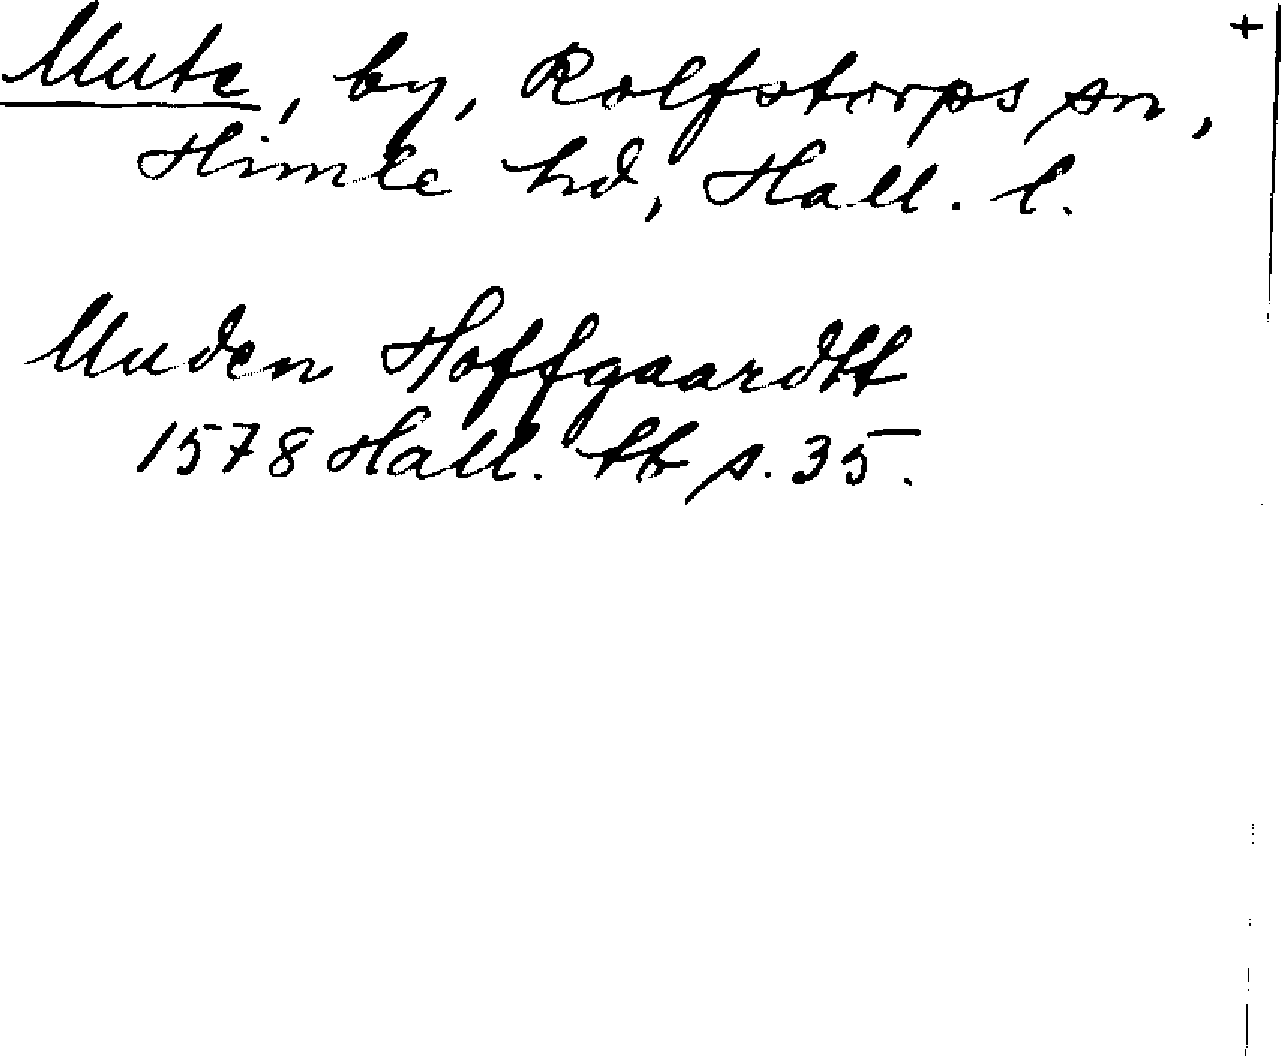 Mute, by, Rolfstorps sn, +
Himle hd, Hall. l.
Muden Hoffgaardtt
1578 Hall. tb s. 35.